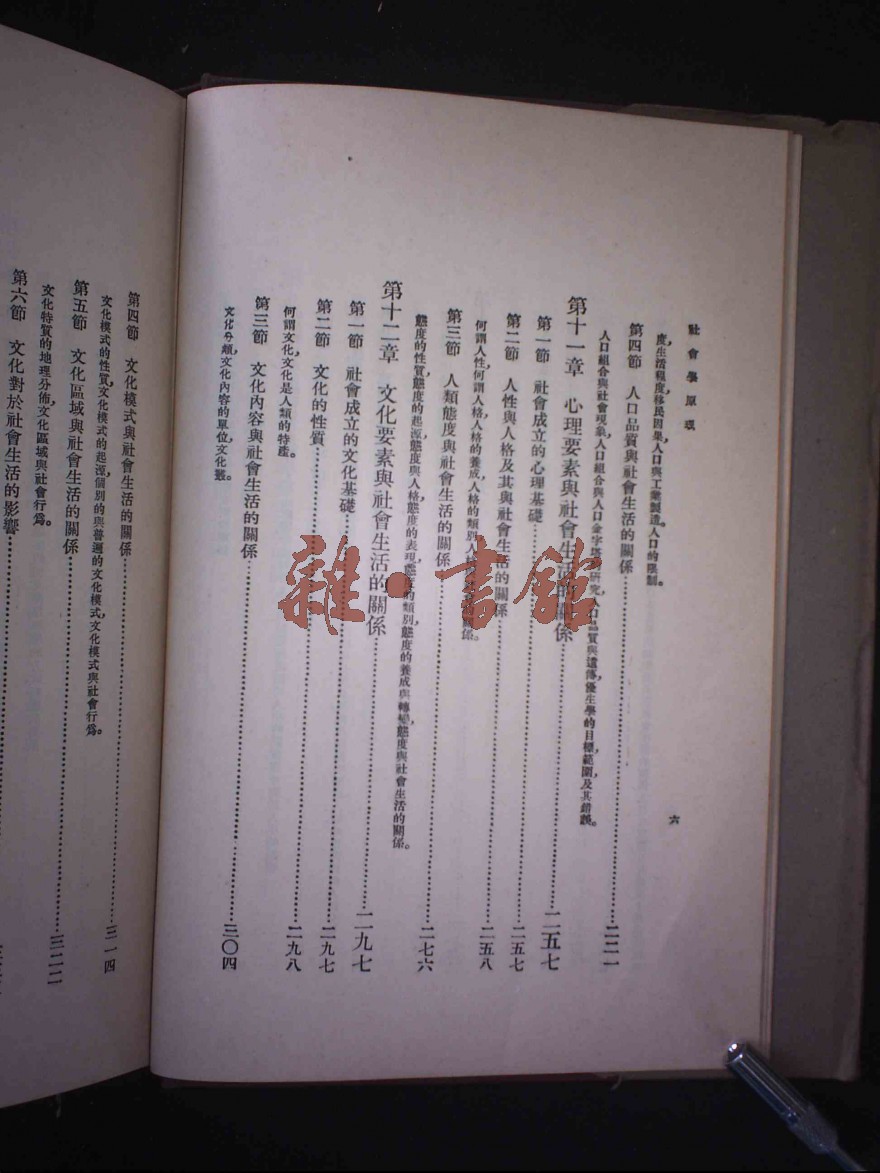 社會學原理
六
度,生活程度,移民因果,人口與工業製造。人口的限制。
第四節 人口品質與社會生活的關係 二二一
人口組合與社會現象,人口組合與人口金字塔 研究,人口品質與遺 優生學的目標範圍,及其錯誤。
第十一章 心理要素與社會生活的關係 二五七
第一節 社會成立的心理基礎 二五七
第二節 人性與人格及其與社會生活的關係 二五八
何謂人性,何謂人格,人格的養成,人格的類別,人格 關係。
第三節 人類態度與社會生活的關係 二七六
態度的性質,態度的起源,態度與人格,態度的表現,態度的類別,態度的養成與轉變,態度與社會生活的關係。
第十二章 文化要素與社會生活的關係 二九七
第一節 社會成立的文化基礎 二九七
第二節 文化的性質 二九八
何謂文化,文化是人類的特產。
第三節 文化內容與社會生活的關係 三〇四
文化分類,文化內容的單位,文化叢。
第四節 文化模式與社會生活的關係 三一四
文化模式的性質,文化模式的起源,個別的與普遍的文化模式,文化模式與社會行爲。
第五節 文化區域與社會生活的關係 三二二
文化特質的地理分佈,文化區域與社會行爲。
第六節 文化對於社會生活的影響
雜·書館